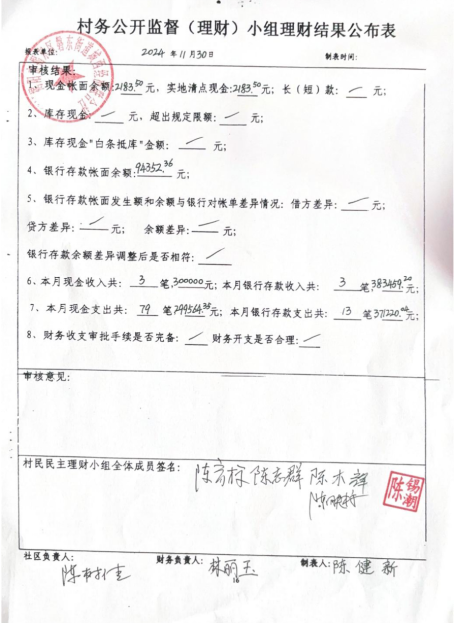 村务公开监督（理财）小组理财结果公布表
报表单位: 2024年11月30日 制表时间:
审核结果:
1、现金帐面余额:2183.50元，实地清点现金:2183.50元; 长（短）款: 元;
2、库存现金: 元，超出规定限额: 元;
3、库存现金"白条抵库"金额: 元;
4、银行存款帐面余额:94352.36元;
5、银行存款帐面发生额和余额与银行对帐单差异情况: 借方差异: 元;
贷方差异: 元; 余额差异: 元;
银行存款余额差异调整后是否相符:
6、本月现金收入共: 3 笔300000元; 本月银行存款收入共: 3 笔383459.20元;
7、本月现金支出共: 79 笔299564.38元; 本月银行存款支出共: 13 笔371220.06元;
8、财务收支审批手续是否完备: 财务开支是否合理:
审核意见:
村民民主理财小组全体成员签名: 陈志群 陈木辉
陈锡潮
社区负责人: 财务负责人: 林丽玉 制表人: 陈健新